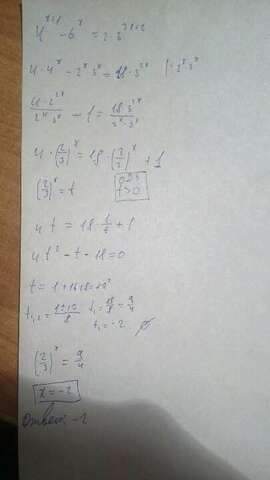 4^{x+1} - 6^x = 2·3^{2x+2}
4·4^x - 2^x·3^x = 18·3^{2x} | : 2^x·3^x
\frac{4·2^{2x}}{2^x 3^x} - 1 = \frac{18·3^{2x}}{2^x·3^x}
4·(\frac{2}{3})^x = 18·(\frac{3}{2})^x + 1
(\frac{2}{3})^x = t ОДЗ t>0
4t = 18\frac{1}{t} + 1
4t^2 - t - 18 = 0
t_{1,2} = \frac{1±17}{8} t_1 = \frac{18}{8} = \frac{9}{4}
t_1 = -2 ∅
(\frac{2}{3})^x = \frac{9}{4}
x = -2
Ответ: -2